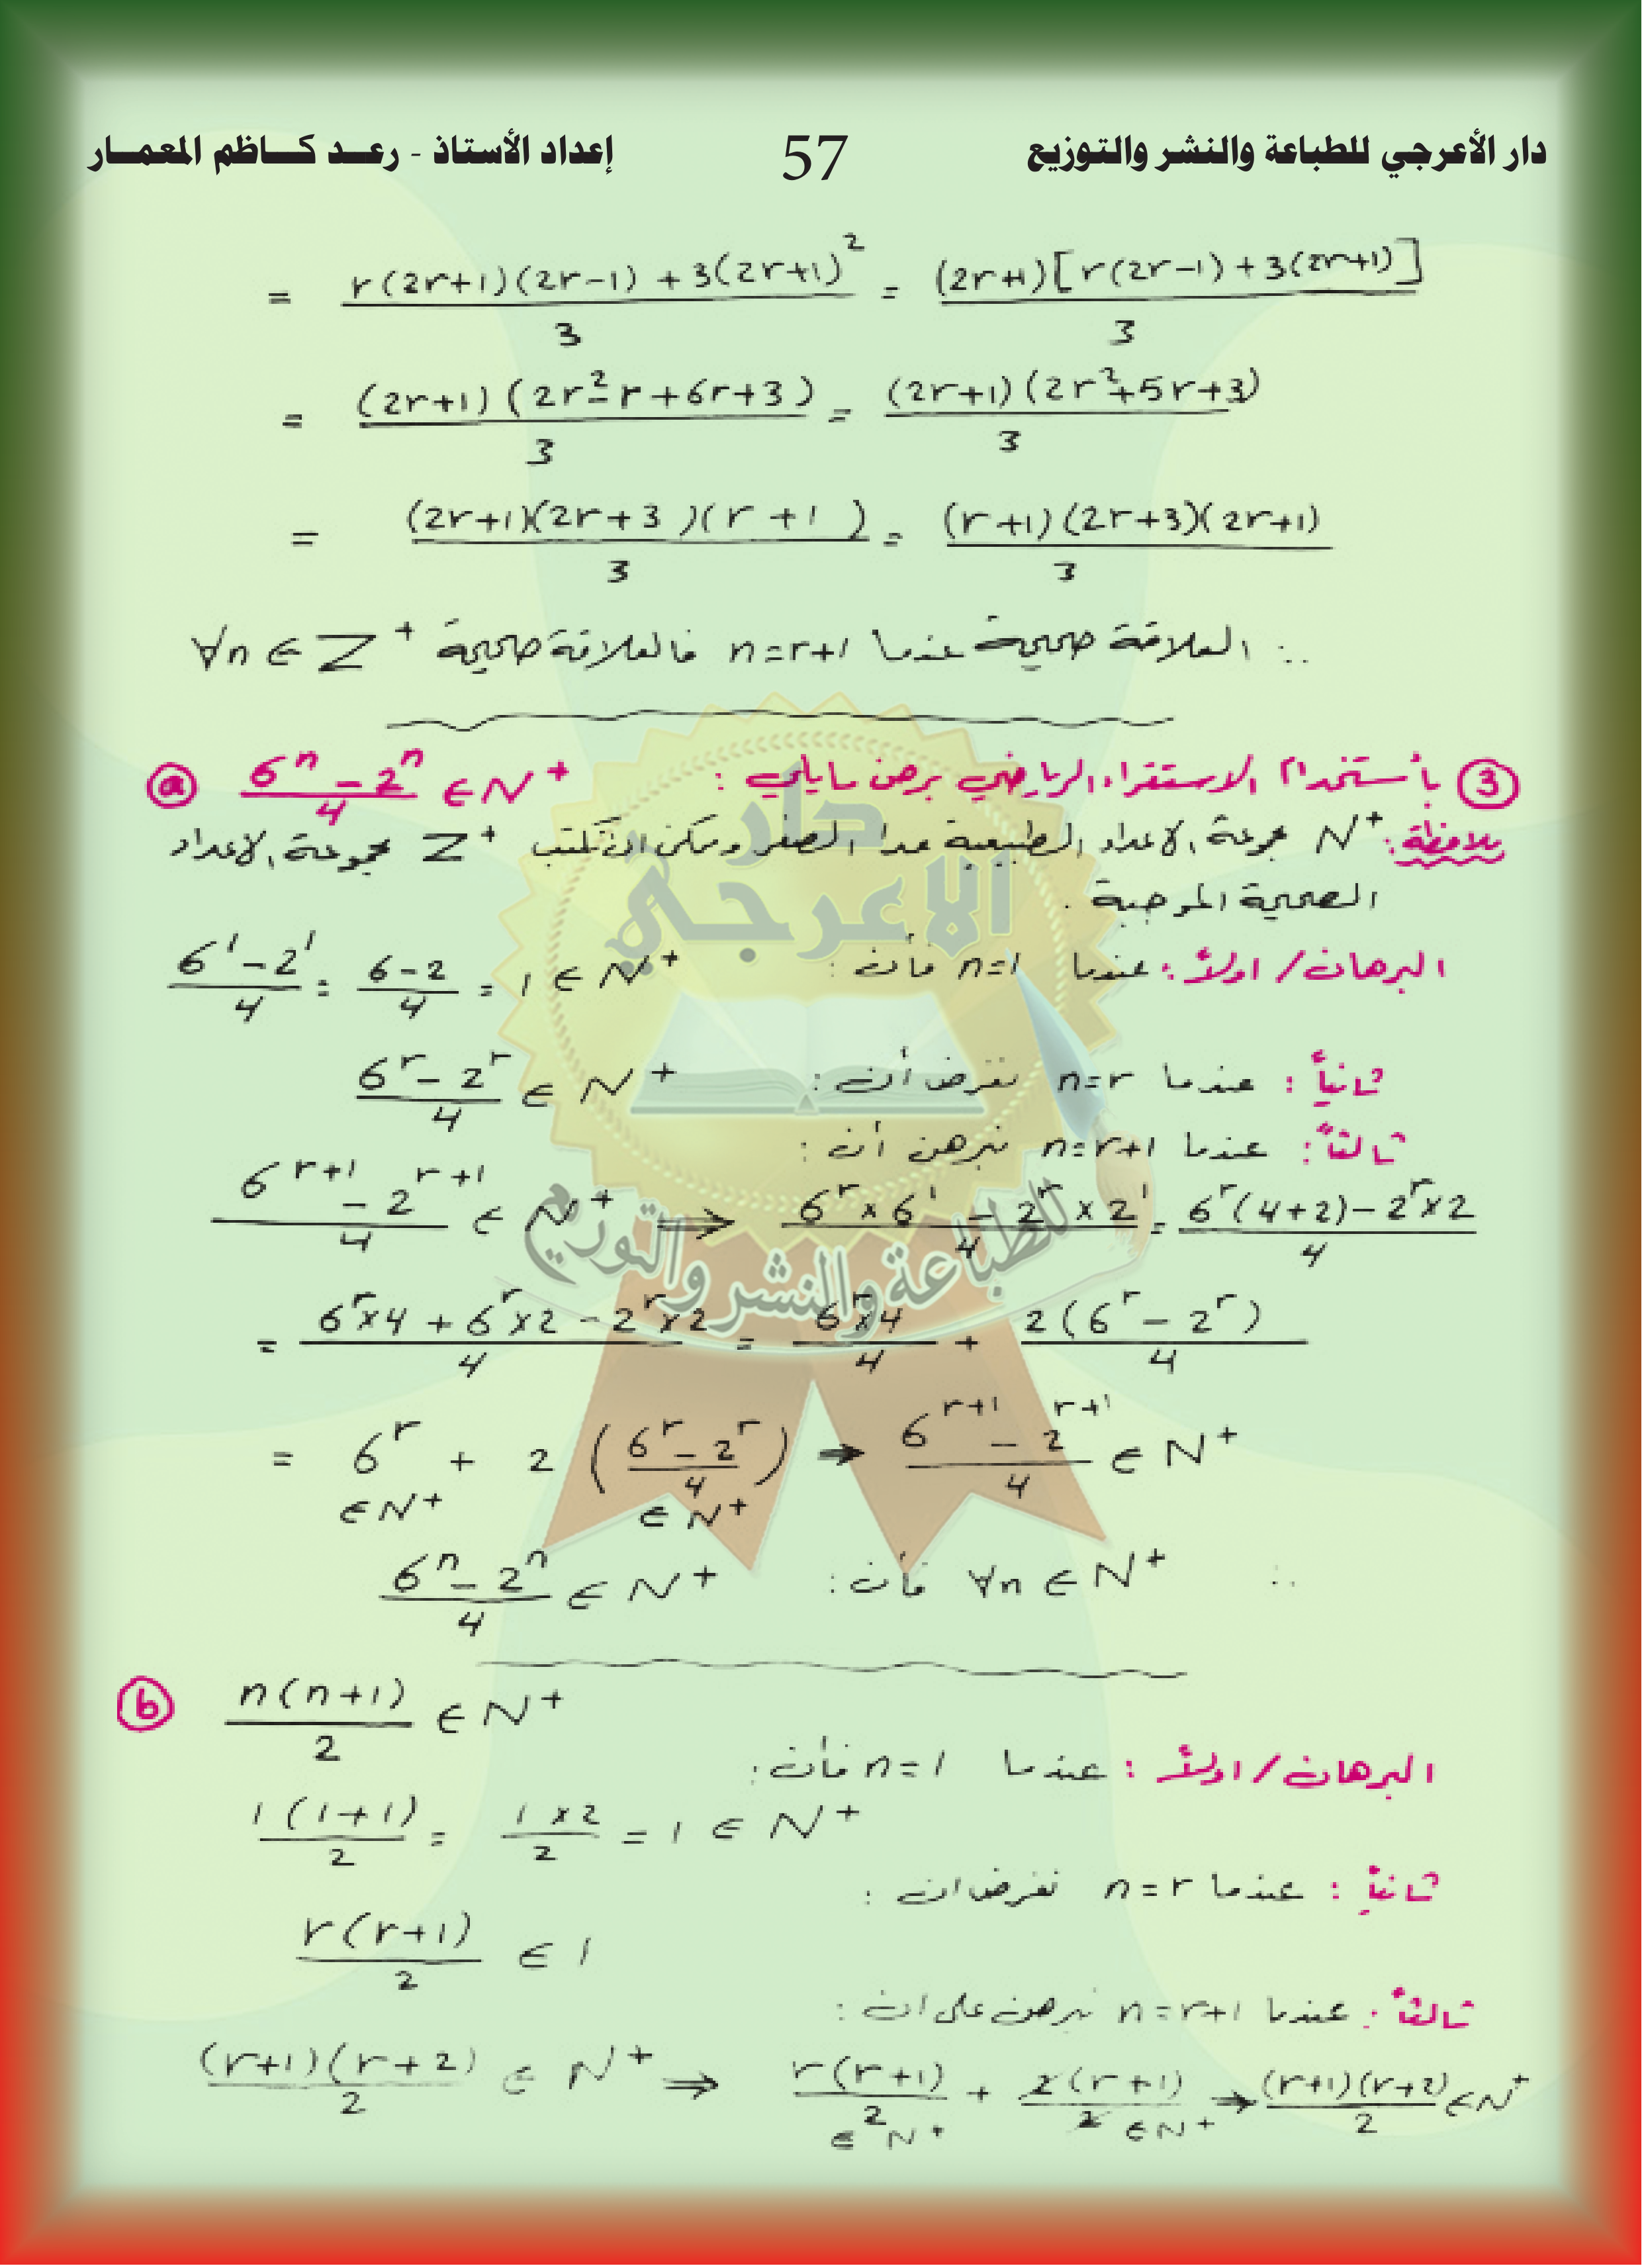 دار الأعرجي للطباعة والنشر والتوزيع 57 إعداد الأستاذ - رعـد كـاظم المعمـار
= r(2r+1)(2r-1) + 3(2r+1)² / 3 = (2r+1)[r(2r-1)+3(2r+1)] / 3
= (2r+1)(2r²-r+6r+3) / 3 = (2r+1)(2r²+5r+3) / 3
= (2r+1)(2r+3)(r+1) / 3 = (r+1)(2r+3)(2r+1) / 3
∴ العلاقة صحيحة عندما n=r+1 فالعلاقة صحيحة ∀n∈Z⁺
③ بأستخدام الاستقراء الرياضي برهن مايلي : ⓐ 6ⁿ-2ⁿ / 4 ∈ N⁺
ملاحظة: N⁺ مجموعة الاعداد الطبيعية عدا الصفر ويمكن ان تكتب Z⁺ مجموعة الاعداد
الصحيحة الموجبة .
البرهان/ اولاً : عندما n=1 فأن : 6¹-2¹ / 4 = 6-2 / 4 = 1 ∈ N⁺
ثانياً : عندما n=r نفرض أن : 6ʳ-2ʳ / 4 ∈ N⁺
ثالثاً : عندما n=r+1 نبرهن أن :
6ʳ⁺¹-2ʳ⁺¹ / 4 ∈ N⁺ ⇒ 6ʳ×6¹ - 2ʳ×2¹ / 4 = 6ʳ(4+2)-2ʳ×2 / 4
= 6ʳ×4 + 6ʳ×2 - 2ʳ×2 / 4 = 6ʳ×4 / 4 + 2(6ʳ-2ʳ) / 4
= 6ʳ + 2 (6ʳ-2ʳ / 4) ⇒ 6ʳ⁺¹-2ʳ⁺¹ / 4 ∈ N⁺
∈N⁺ ∈N⁺
∴ ∀n∈N⁺ فأن : 6ⁿ-2ⁿ / 4 ∈ N⁺
ⓑ n(n+1) / 2 ∈ N⁺
البرهان/ اولاً : عندما n=1 فأن :
1(1+1) / 2 = 1×2 / 2 = 1 ∈ N⁺
ثانياً : عندما n=r نفرض ان :
r(r+1) / 2 ∈ 1
ثالثاً : عندما n=r+1 نبرهن على ان :
(r+1)(r+2) / 2 ∈ N⁺ ⇒ r(r+1) / 2 + 2(r+1) / 2 ⇒ (r+1)(r+2) / 2 ∈N⁺
∈N⁺ ∈N⁺
دار
الاعرجي
للطباعة والنشر والتوزيع